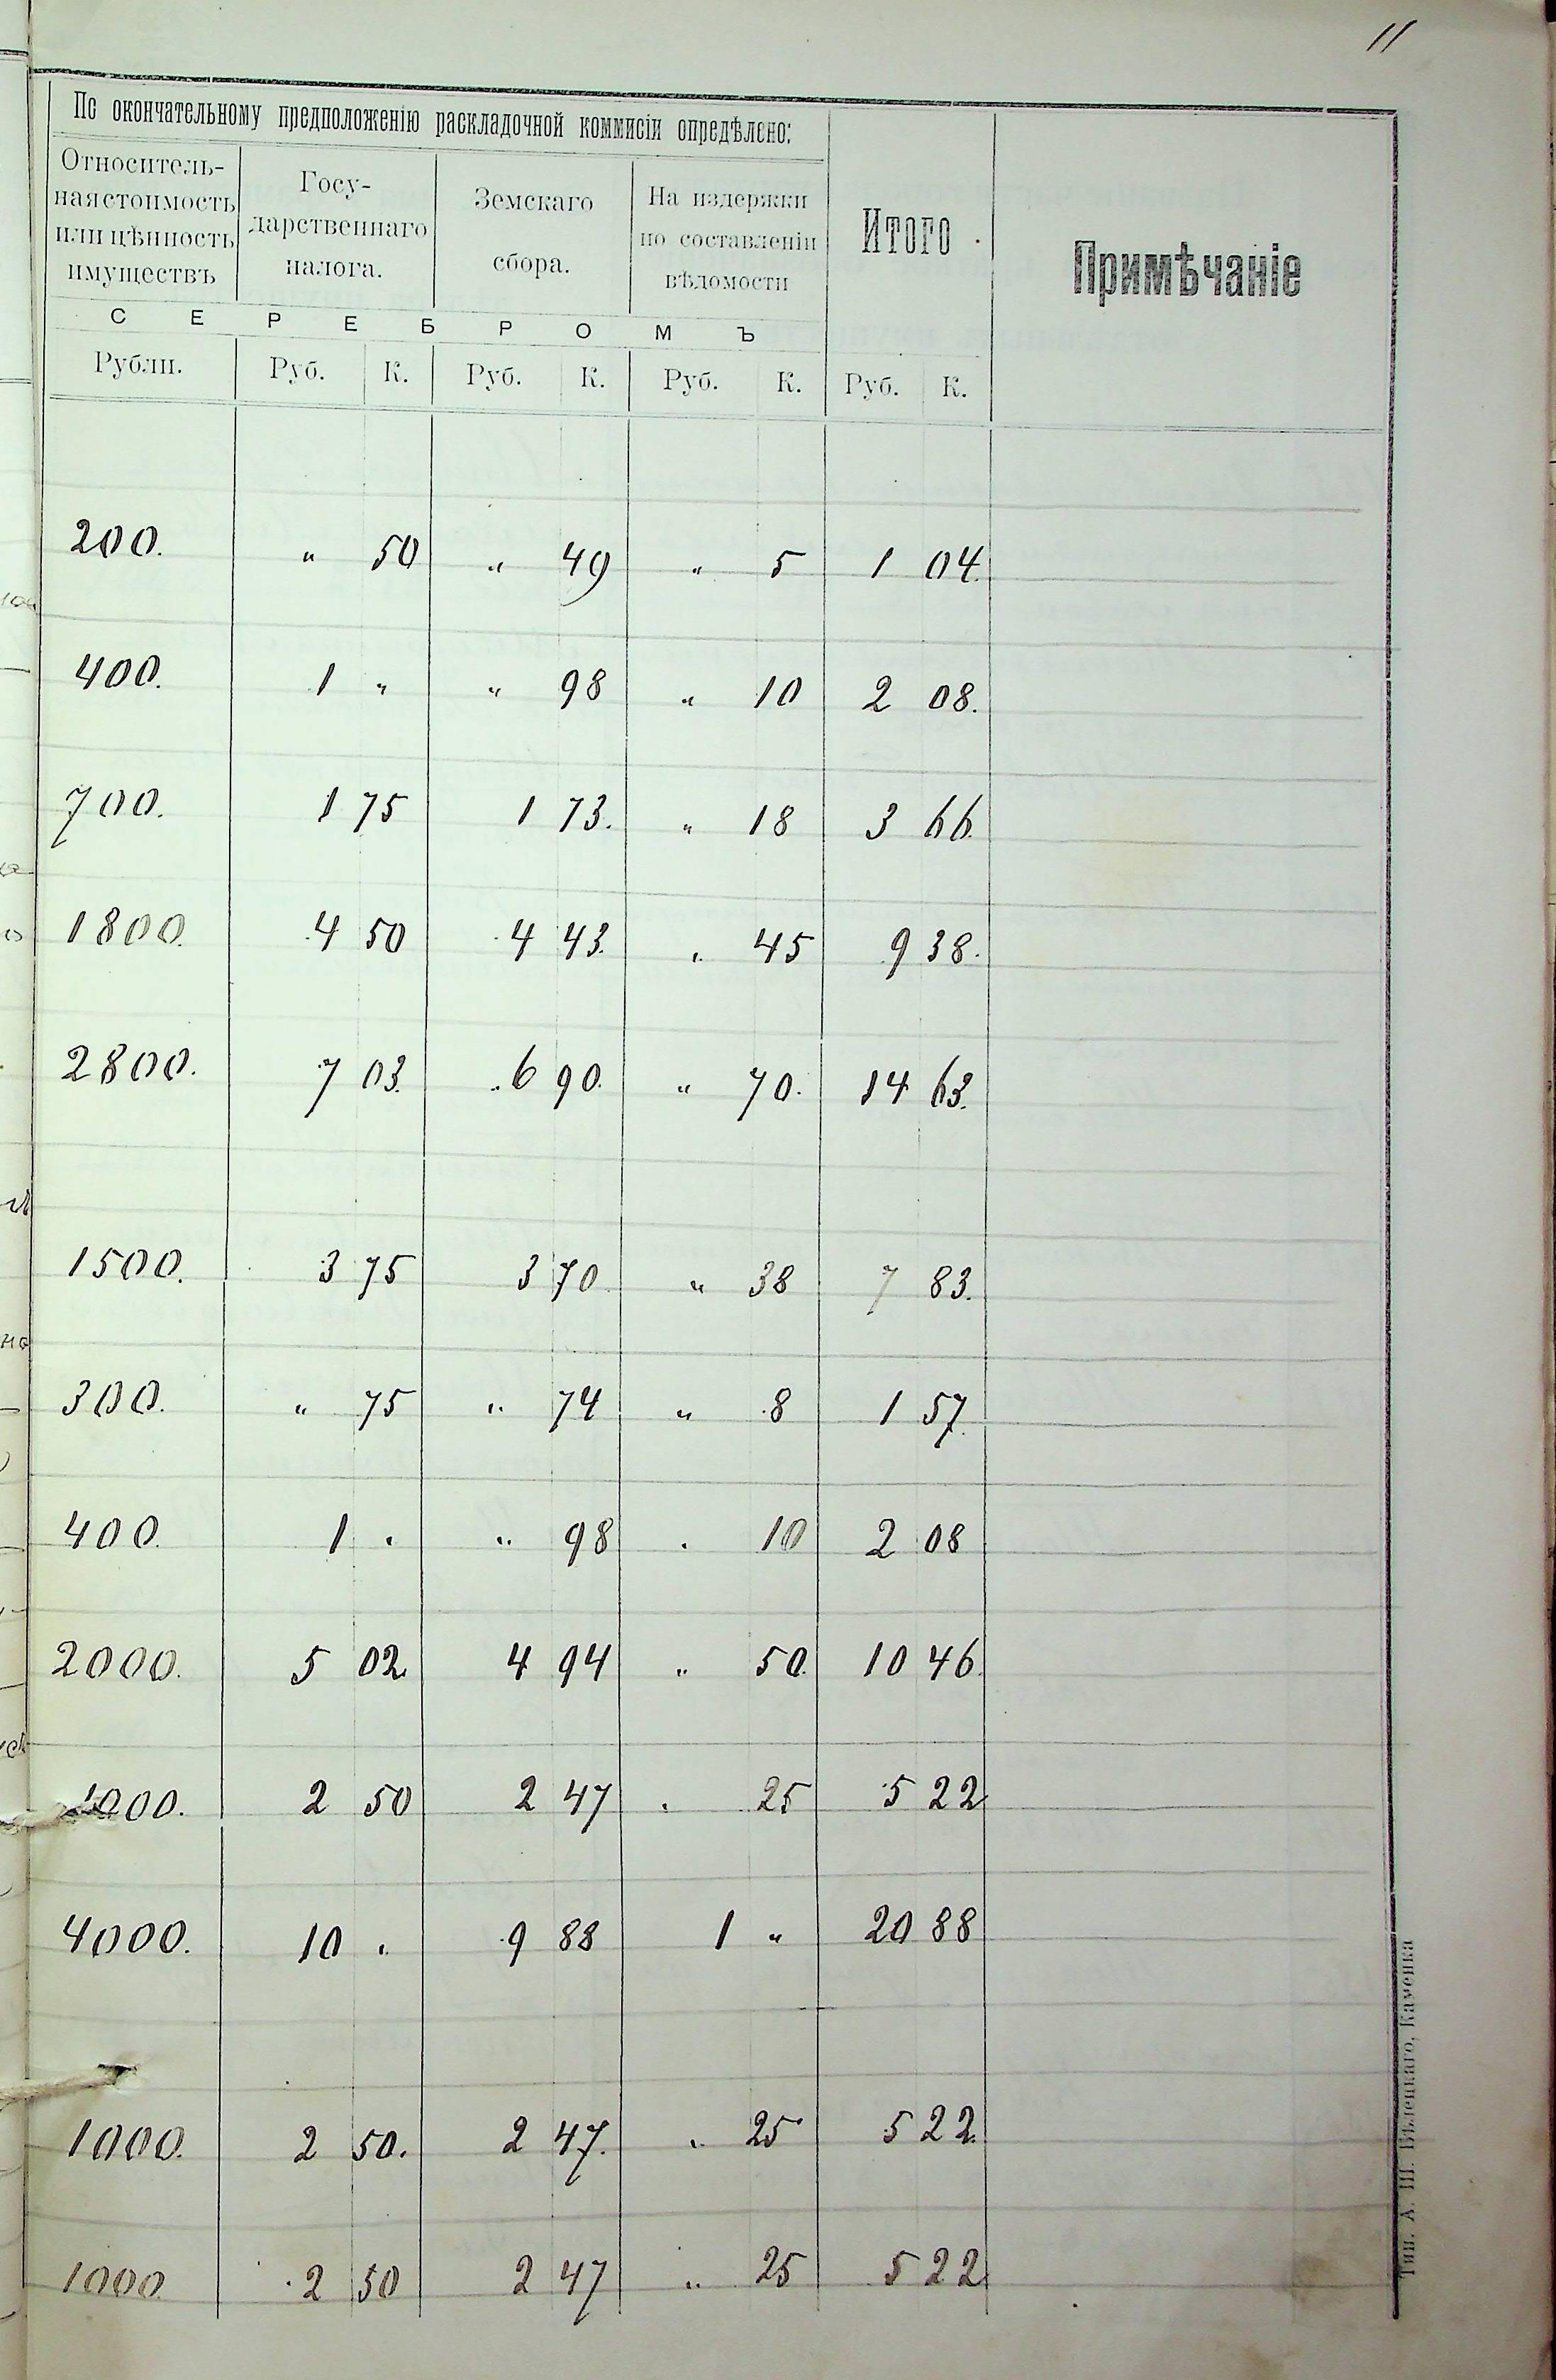 11
По окончательному предположенію раскладочной коммисіи опредѣлено:
Относитель-
ная стоимость
или цѣнность
имуществъ
Госу-
дарственнаго
налога.
Земскаго
сбора.
На издержки
по составленіи
вѣдомости
Итого
Примѣчаніе
С Е Р Е Б Р О М Ъ
Рубли. Руб. К. Руб. К. Руб. К. Руб. К.
200. " 50 " 49 " 5 1 04.
400. 1 " " 98 " 10 2 08.
700. 1 75 1 73. " 18 3 66.
1800. 4 50 4 43. " 45 9 38.
2800. 7 03. 6 90. " 70. 14 63.
1500. 3 75 3 70. " 38 7 83.
300. " 75 " 74 " 8 1 57.
400. 1 " " 98 " 10 2 08
2000. 5 02. 4 94 " 50. 10 46.
1000. 2 50 2 47 " 25 5 22
4000. 10 " 9 88 1 " 20 88
1000. 2 50. 2 47. " 25 5 22.
1000. 2 50 2 47 " 25 5 22
Тип. А. Ш. Бѣлецкаго, Каменка